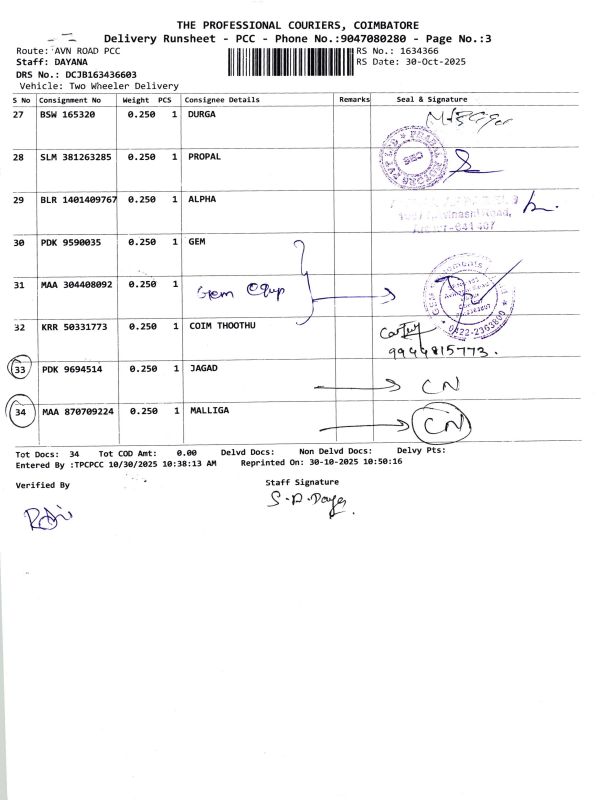 THE PROFESSIONAL COURIERS, COIMBATORE
Delivery Runsheet - PCC - Phone No.:9047080280 - Page No.:3
Route: AVN ROAD PCC RS No.: 1634366
Staff: DAYANA RS Date: 30-Oct-2025
DRS No.: DCJB163436603
Vehicle: Two Wheeler Delivery
S No Consignment No Weight PCS Consignee Details Remarks Seal & Signature
27 BSW 165320 0.250 1 DURGA
28 SLM 381263285 0.250 1 PROPAL
29 BLR 1401409767 0.250 1 ALPHA
30 PDK 9590035 0.250 1 GEM
31 MAA 304408092 0.250 1
Gem Equp
32 KRR 50331773 0.250 1 COIM THOOTHU
0422-2363800
9944815773.
33 PDK 9694514 0.250 1 JAGAD
CN
34 MAA 870709224 0.250 1 MALLIGA
CN
Tot Docs: 34 Tot COD Amt: 0.00 Delvd Docs: Non Delvd Docs: Delvy Pts:
Entered By :TPCPCC 10/30/2025 10:38:13 AM Reprinted On: 30-10-2025 10:50:16
Verified By Staff Signature